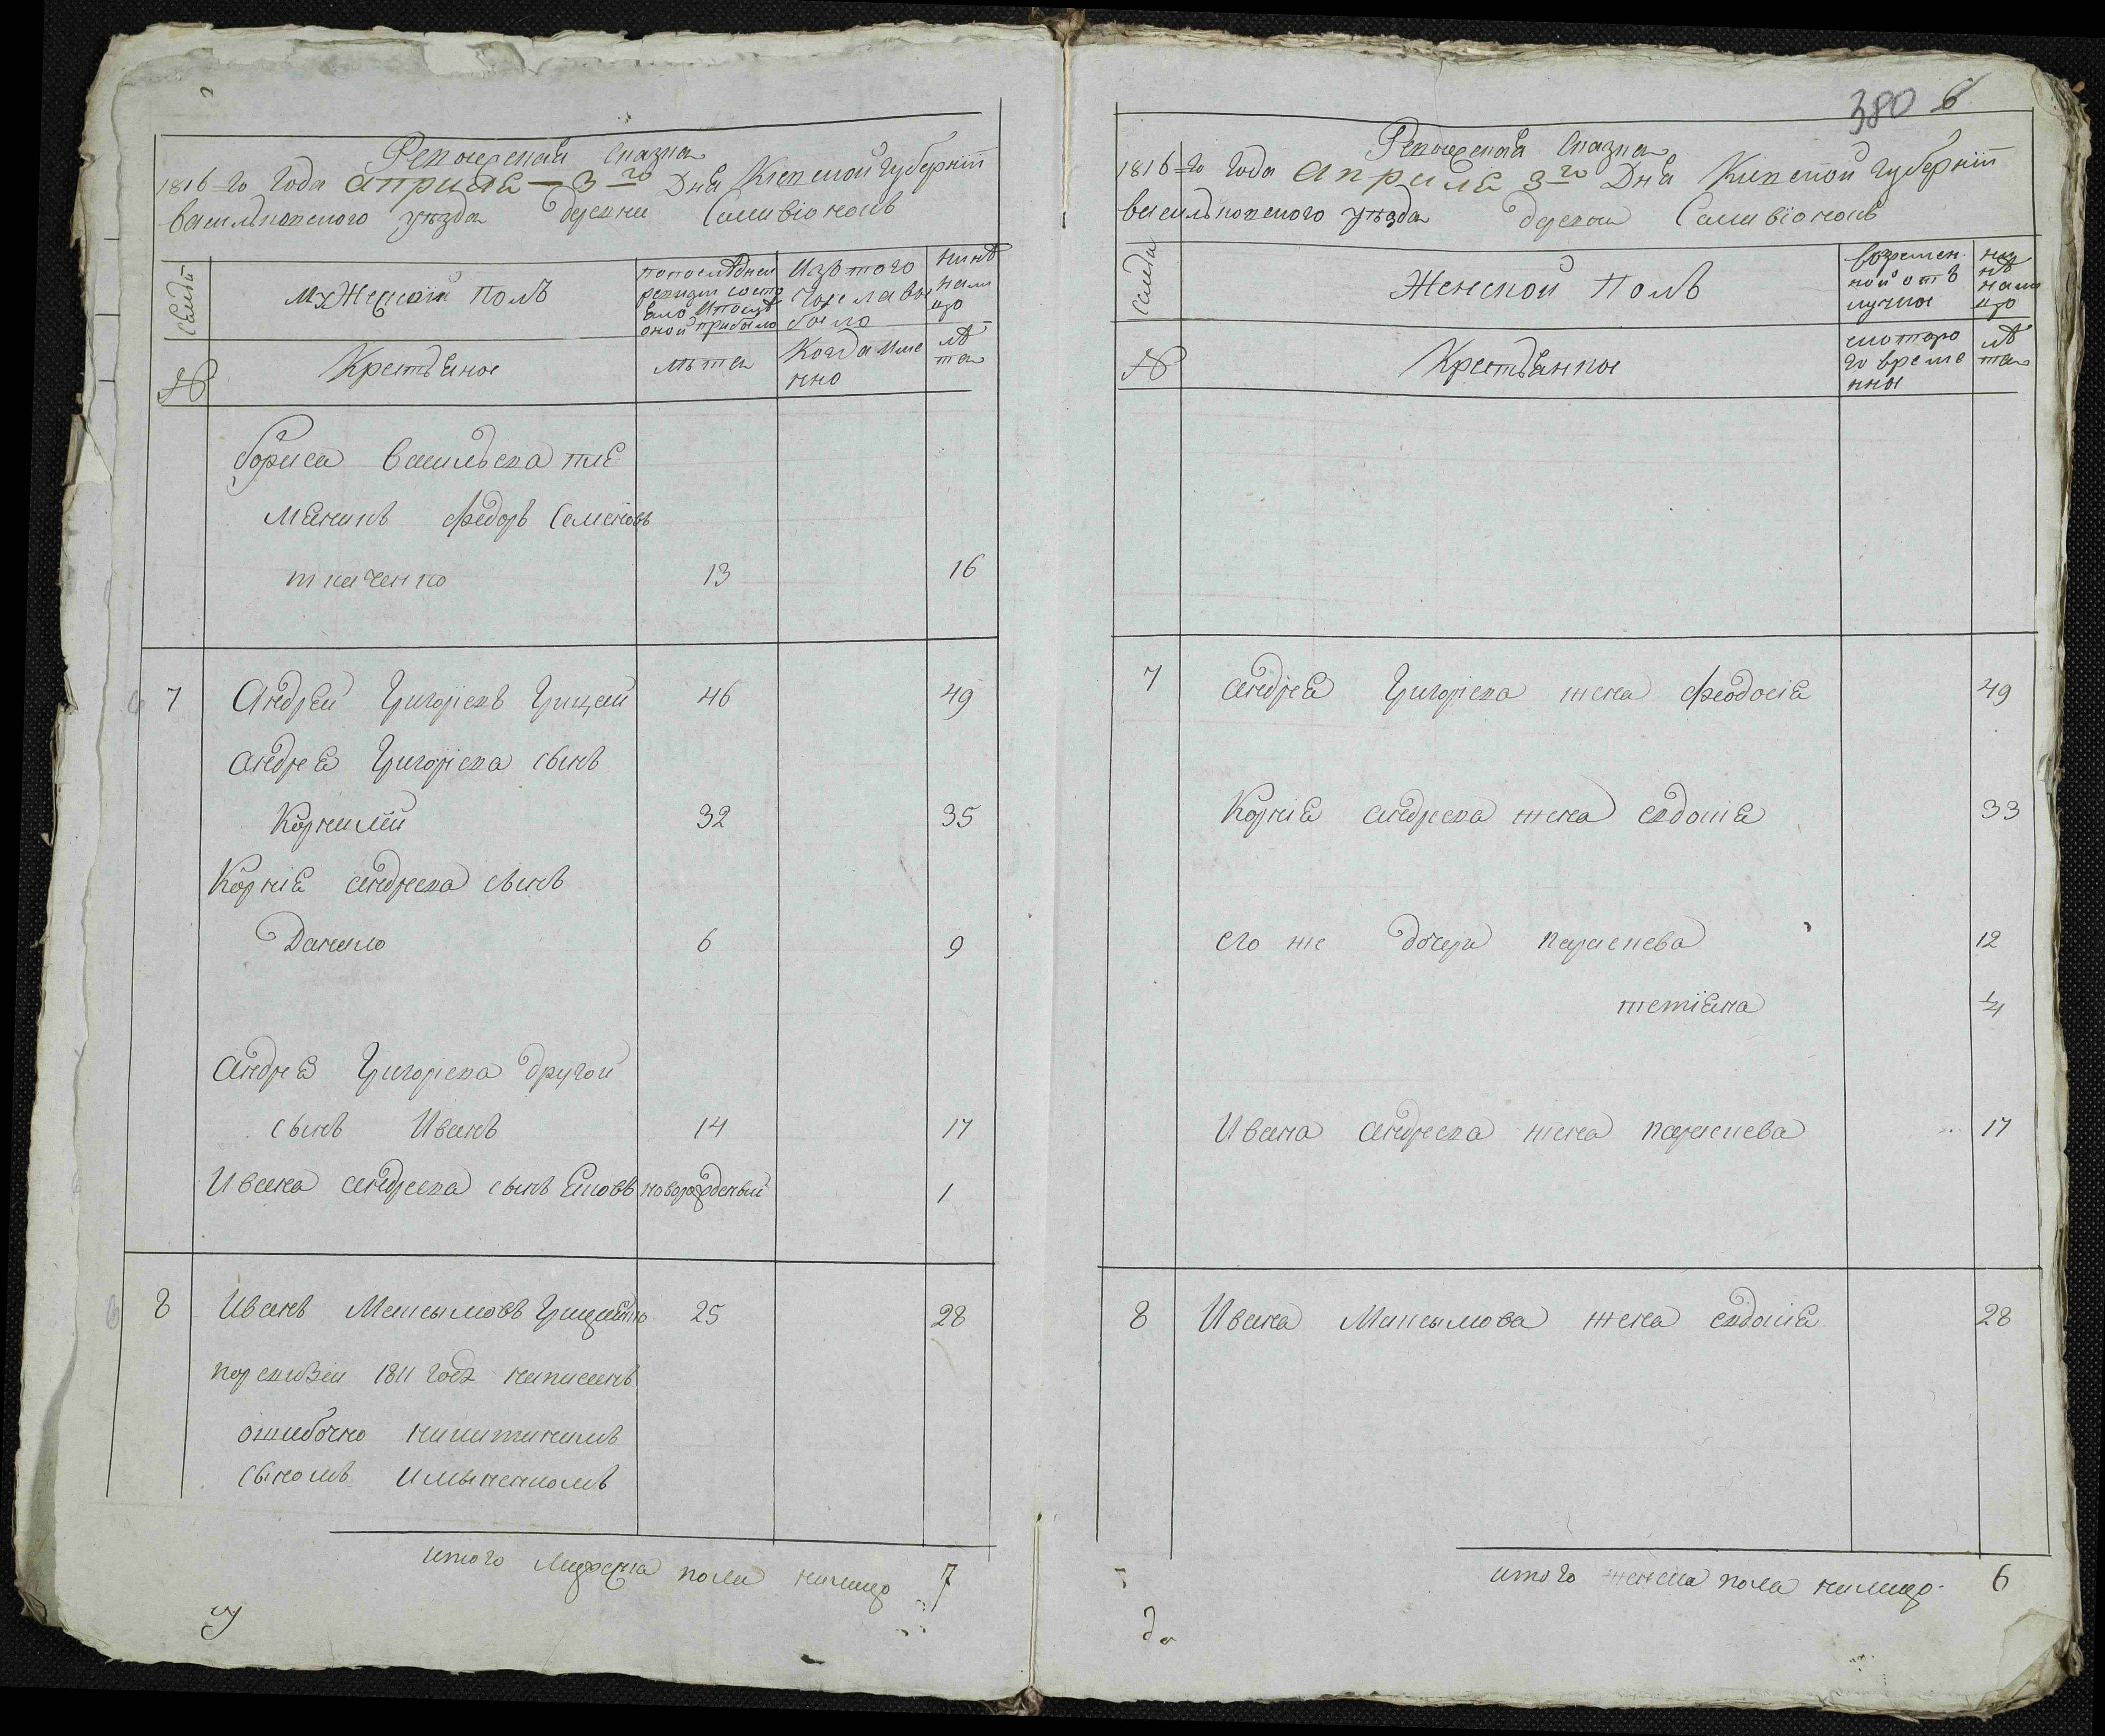 Ревижская Сказка
1816-го Года априля 3-го Дня Киевской Губерніи
васильковского уезда деревни Саливіонокъ
Семьи
мужеской полъ
попоследней ревизіи состояло ипослѣ оной прибыло
Изъ того числа выбыло
нынѣ налицо
№
Крестьяне
лѣта
Когда именно
лѣта
бориса васильева пле
мянникъ федоръ Семеновъ
ткаченко 13 16
7 Андрей Григориевъ Грицай 46 49
андрея Григориева сынъ
Корнилій 32 35
Корнія андреева сынъ
Данило 6 9
андрея Григориева другой
сынъ Иванъ 14 17
Ивана андреева сынъ новорожденый 1
8 Иванъ Максымовъ 25 28
поревизіи 1811 года написанъ
ошибочно никитинымъ
сыномъ
итого Мужеска пола налицо 7
380 6
Ревижская Сказка
1816-го Года априля 3-го Дня Киевской Губерніи
васильковского уезда деревни Саливіонокъ
Семьи
Женской полъ
вовремен
ной отъ
лучке
ны
нѣ
нали
цо
№
Крестьянки
скоторо
го време
ни
лѣ
та
7 андрея Григориева жена феодосія 49
Корнія андреева жена евдокія 33
его же дочери параскева 12
тетіяна 1/4
Ивана андреева жена параскева 17
8 Ивана Максымова жена евдокія 28
итого женска пола налицо 6